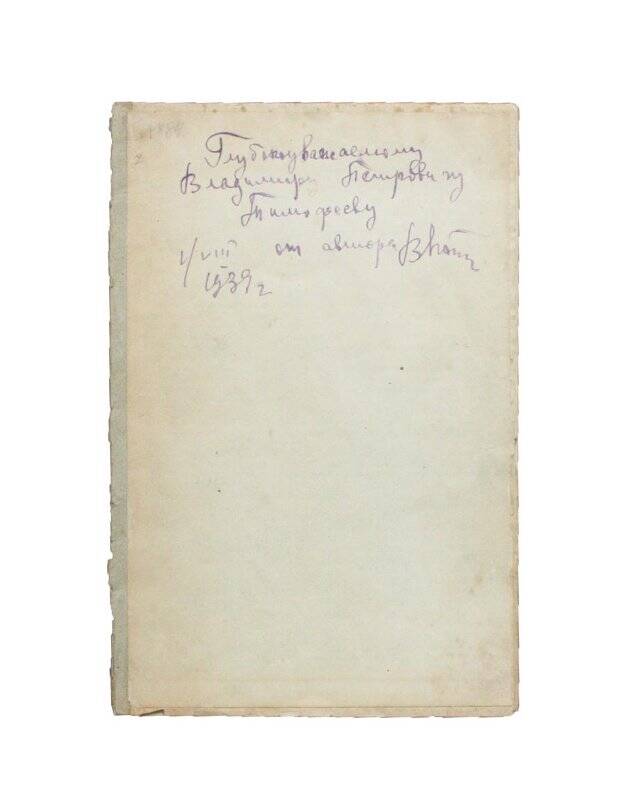 Глубокоуважаемому
Владимиру Петровичу
Тимофееву
от автора
1/VIII
1939 г